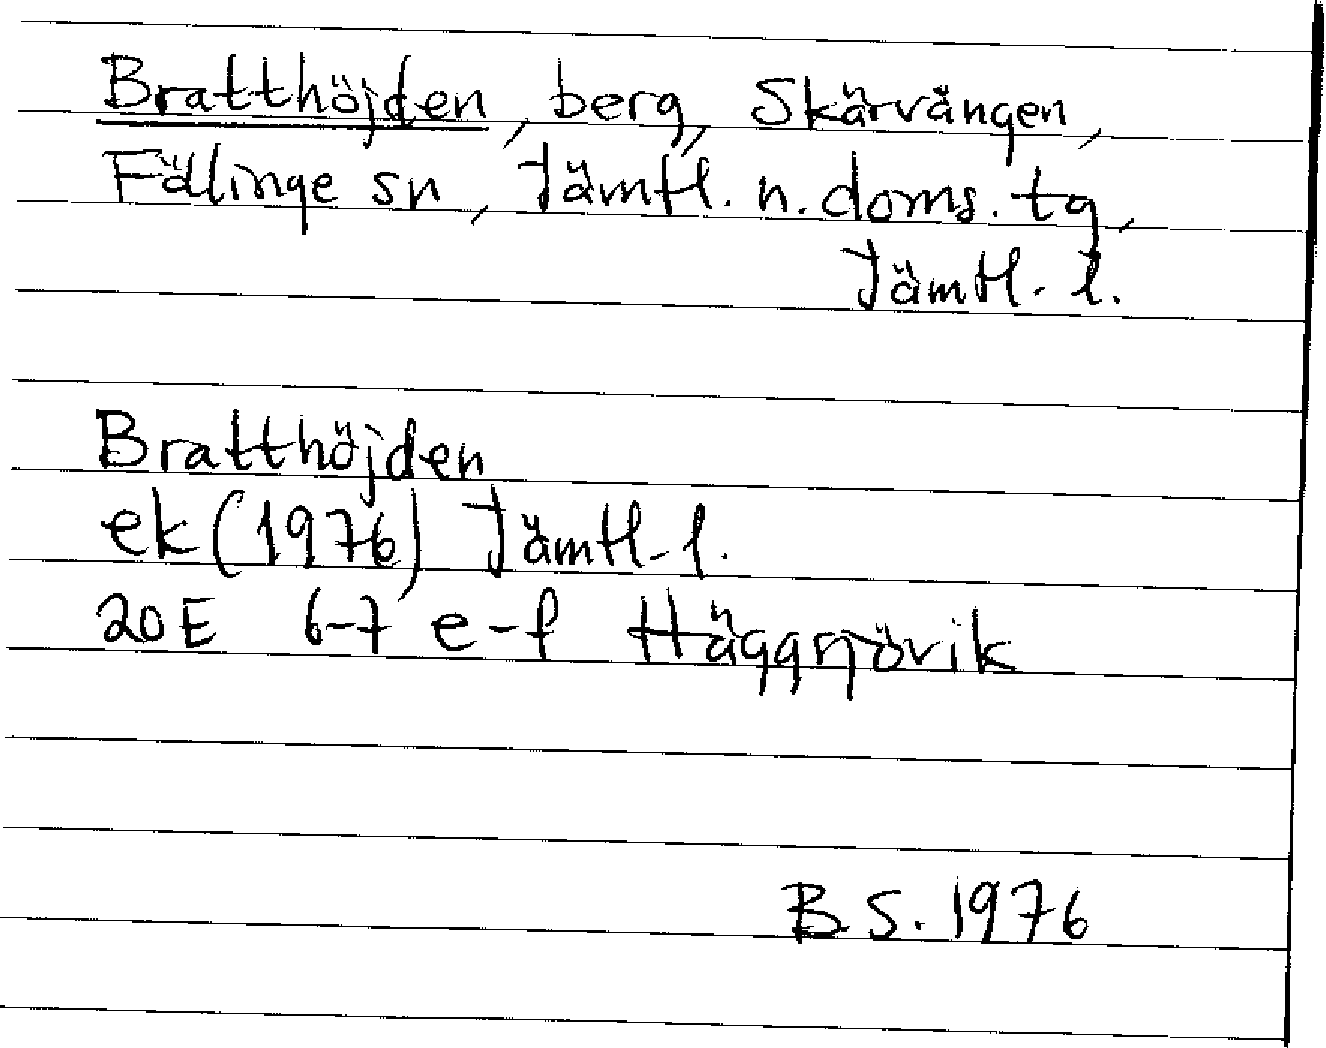 Bratthöjden, berg, Skärvången,
Fölinge sn, Jämtl. n. doms. tg,
Jämtl. l.
Bratthöjden
ek (1976) Jämtl. l.
20E 6-7 e-f Häggsjövik
B.S. 1976